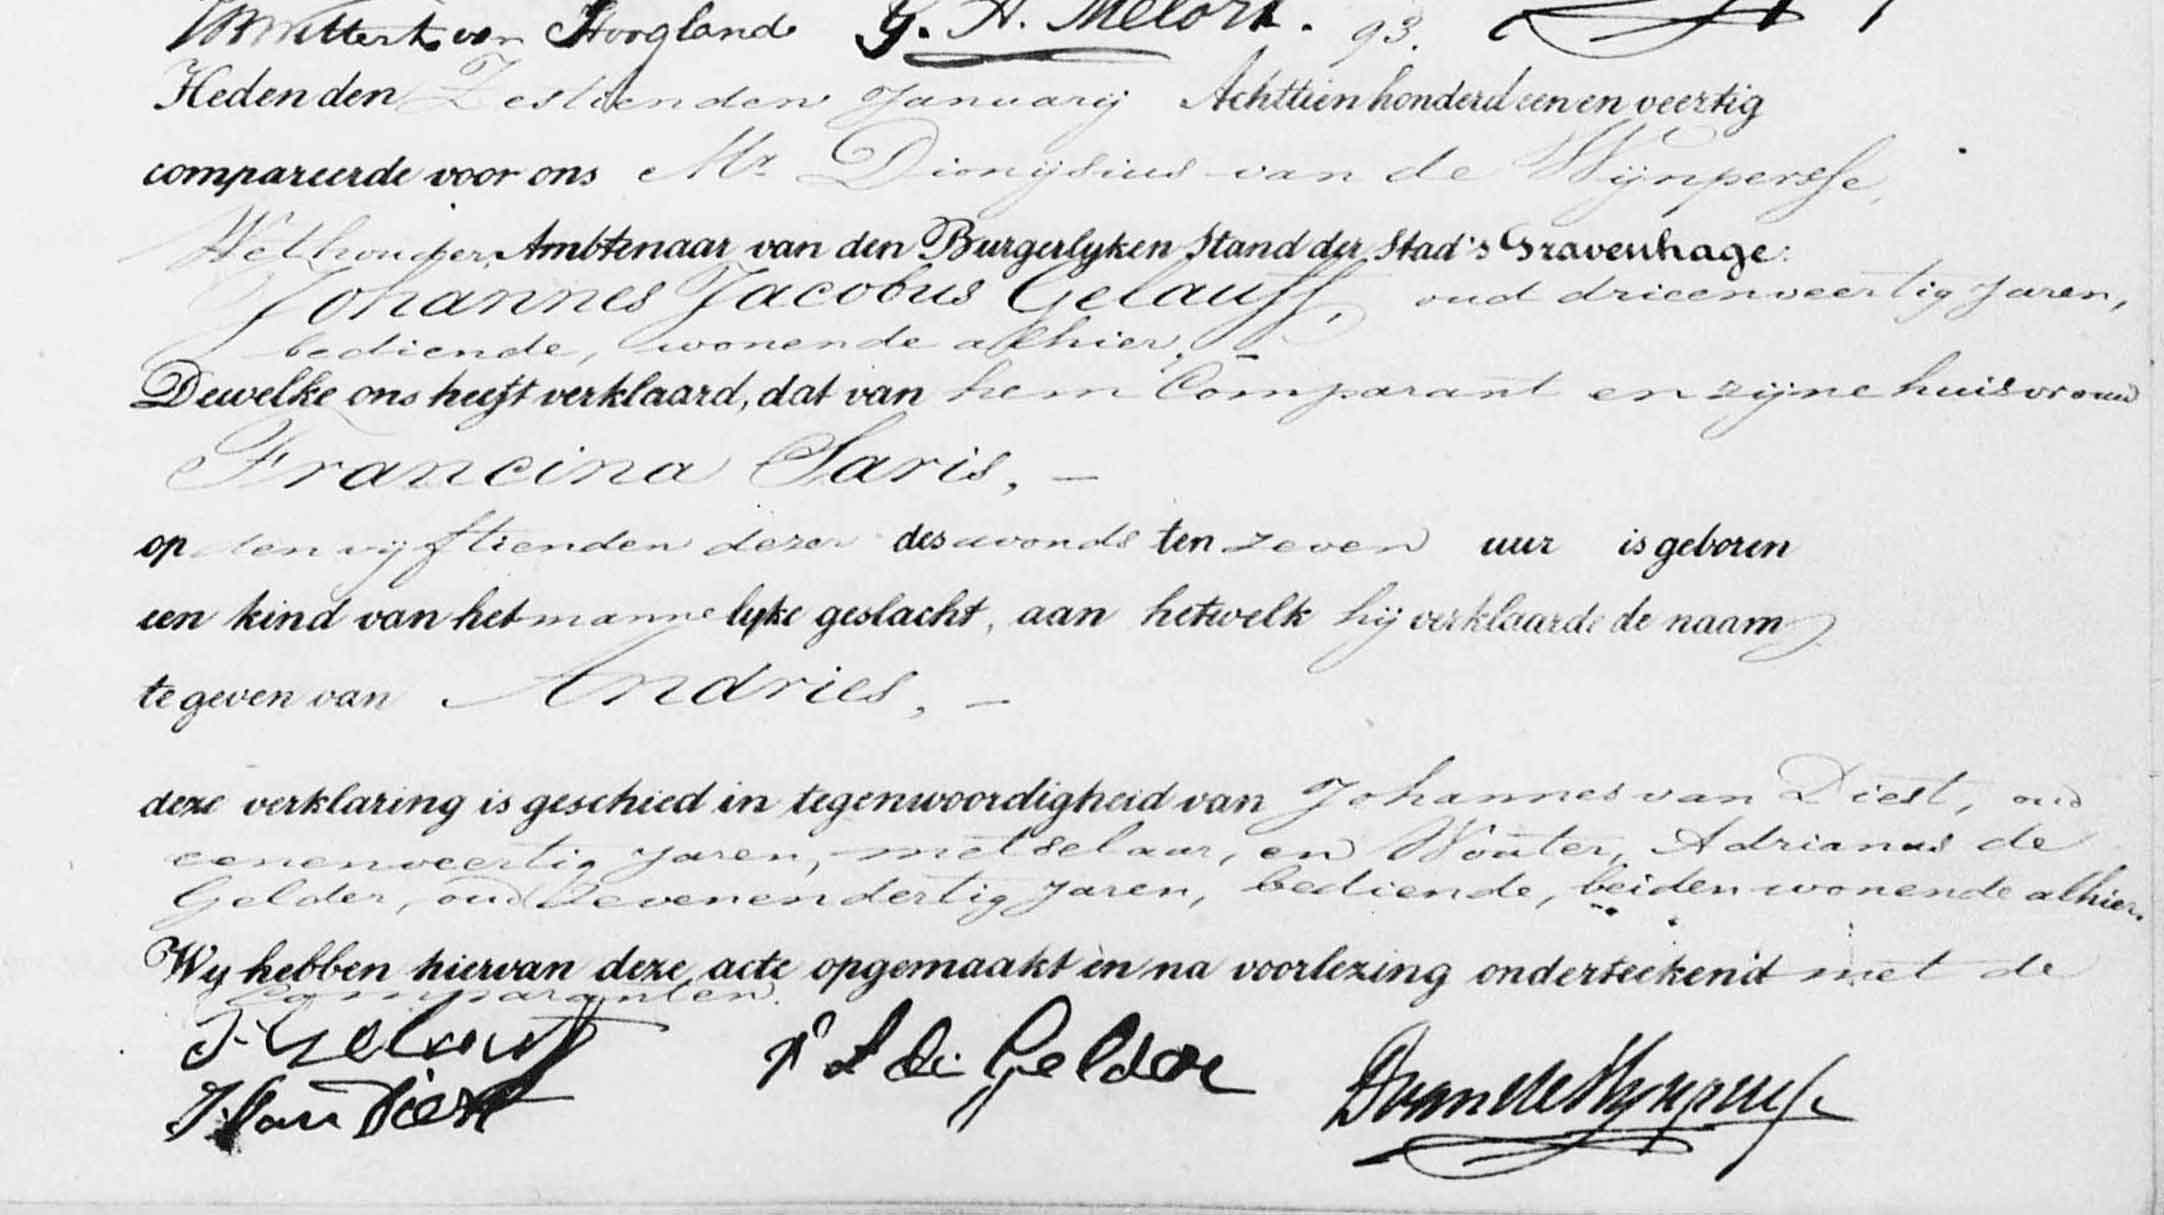 Wittert van Hoogland G. A. Melort.
93.
Heden den Zestienden January Achttien honderd een en veertig
compareerde voor ons Mr. Dionysius van de Wijnpersse,
Wethouder, Ambtenaar van den Burgerlyken Stand der Stad 's Gravenhage:
Johannes Jacobus Gelauff, oud drieenveertig Jaren,
bediende, wonende alhier, –
Dewelke ons heeft verklaard, dat van hem Comparant en zijne huisvrouw
Francina Saris, –
op den vijftienden dezer des avonds ten zeven uur is geboren
een kind van het mannelyke geslacht, aan hetwelk hij verklaarde de naam
te geven van Andries, –
deze verklaring is geschied in tegenwoordigheid van Johannes van Diest, oud
eenenveertig Jaren, metselaar, en Wouter Adrianus de
Gelder, oud Zevenendertig Jaren, bediende, beiden wonende alhier.
Wy hebben hiervan deze acte opgemaakt en na voorlezing onderteekend met de
Comparanten.
J. Gelauff
de Gelder
D van de Wynpersse
J. Van Diest